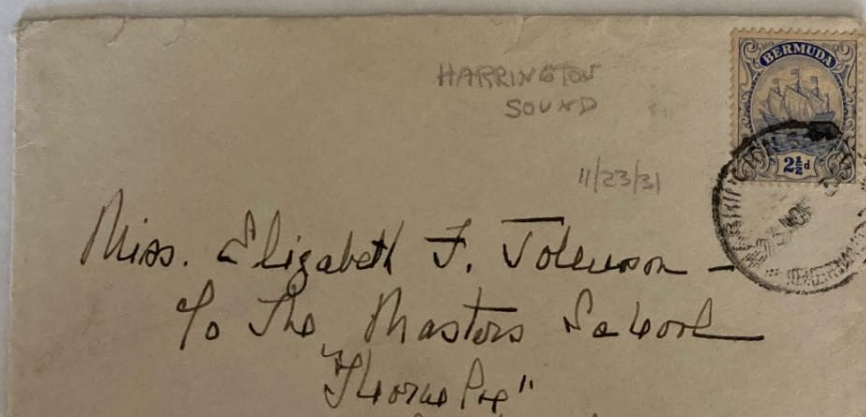 HARRINGTON
SOUND
BERMUDA
2½d
11/23/31
Miss. Elizabeth F. Johnson –
To The Masters School